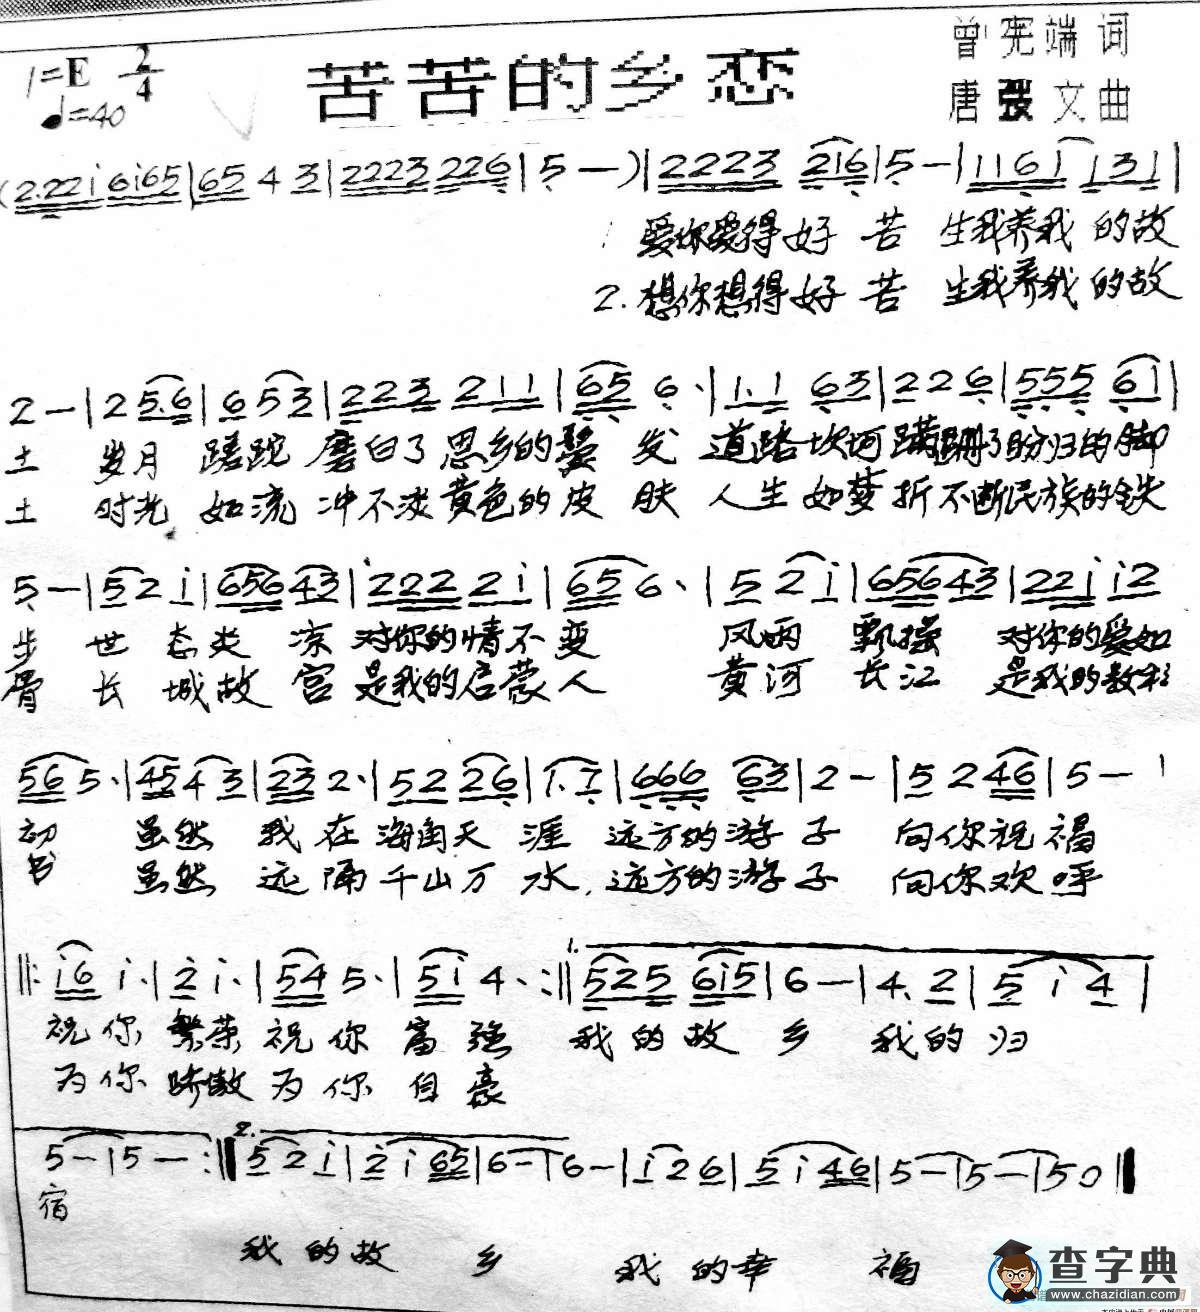 1=E 2/4
♩=40
苦苦的乡恋
曾宪端 词
唐强文曲
(2.22i 6i65|65 4 3|2223 226|5 —)|2223 2i6|5 —|116i i31|
1 爱你爱得好 苦 生我养我 的故
2.想你想得好 苦 生我养我 的故
2 —|2 5.6|6 53|223 211|65 6.|1.1 63|22 6|555 6i|
土 岁月 蹉跎 磨白了思乡的鬓 发 道路坎坷蹒跚了盼归的脚
土 时光 如流 冲不淡黄色的皮 肤 人生 如梦 折不断民族的铁
5 —|52 i|65643|222 2i|65 6.|5 2i|65643|22i i2
步 世 态炎 凉 对你的情不变 风雨 飘摇 对你的爱如
骨 长 城故 宫 是我的启蒙人 黄河 长江 是我的教科
56 5.|454 3|23 2.|52 26|1.1|666 63|2 —|5 2 46|5 —
初 虽然 我 在 海角天 涯 远方的游 子 向你祝 福
书 虽然 远 隔 千山万 水,远方的游 子 向你欢 呼
‖:i6 i.|2 i.|54 5.|5i 4.:‖1.525 6i5|6 —|4. 2|5 i 4|
祝你 繁荣 祝你 富 强 我的故 乡 我的 归
为你 骄傲 为你 自 豪
5 —|5 —:‖2.52i|2i65|6 —|6 —|i26|5i46|5 —|5 —|50‖
宿
我 的故 乡 我 的幸 福
查字典
www.chazidian.com